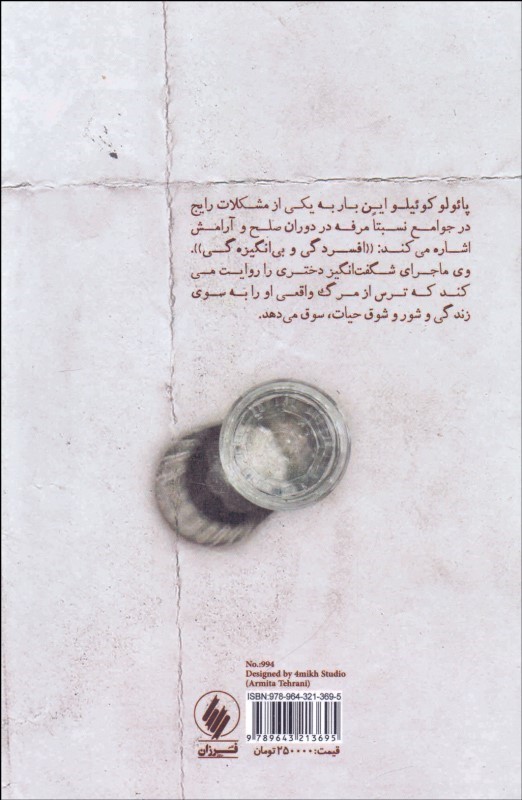 پائولو کوئیلو این بار به یکی از مشکلات رایج
در جوامع نسبتاً مرفه در دوران صلح و آرامش
اشاره می‌کند: ((افسردگی و بی‌انگیزه‌گی)).
وی ماجرای شگفت‌انگیز دختری را روایت می
کند که ترس از مرگ واقعی او را به سوی
زندگی و شور و شوق حیات، سوق می‌دهد.
No.:994
Designed by 4mikh Studio
(Armita Tehrani)
ISBN:978-964-321-369-5
9 789643 213695
فرزان
قیمت: ۲۵۰۰۰۰ تومان